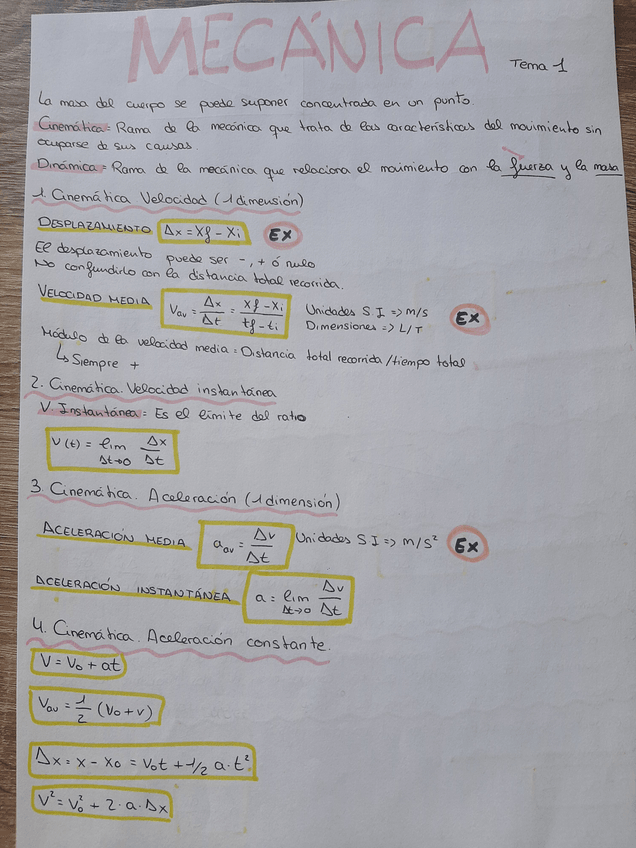 MECÁNICA
Tema 1
La masa del cuerpo se puede suponer concentrada en un punto.
Cinemática = Rama de la mecánica que trata de las características del movimiento sin
ocuparse de sus causas.
Dinámica = Rama de la mecánica que relaciona el movimiento con la fuerza y la masa
1. Cinemática Velocidad (1 dimensión)
DESPLAZAMIENTO Δx = xf - xi EX
El desplazamiento puede ser -, + ó nulo
No confundirlo con la distancia total recorrida.
VELOCIDAD MEDIA Vav = Δx/Δt = (xf - xi)/(tf - ti) Unidades S.I => m/s EX
Dimensiones => L/T
Módulo de la velocidad media = Distancia total recorrida / tiempo total
↳ Siempre +
2. Cinemática. Velocidad instantánea
V. Instantánea = Es el límite del ratio
V(t) = lim Δt→0 Δx/Δt
3. Cinemática. Aceleración (1 dimensión)
ACELERACIÓN MEDIA aav = Δv/Δt Unidades S I => m/s² EX
ACELERACIÓN INSTANTÁNEA a = lim Δt→0 Δv/Δt
4. Cinemática. Aceleración constante.
V = V0 + at
Vav = 1/2 (V0 + v)
Δx = x - x0 = V0t + 1/2 a·t²
V² = V0² + 2·a·Δx